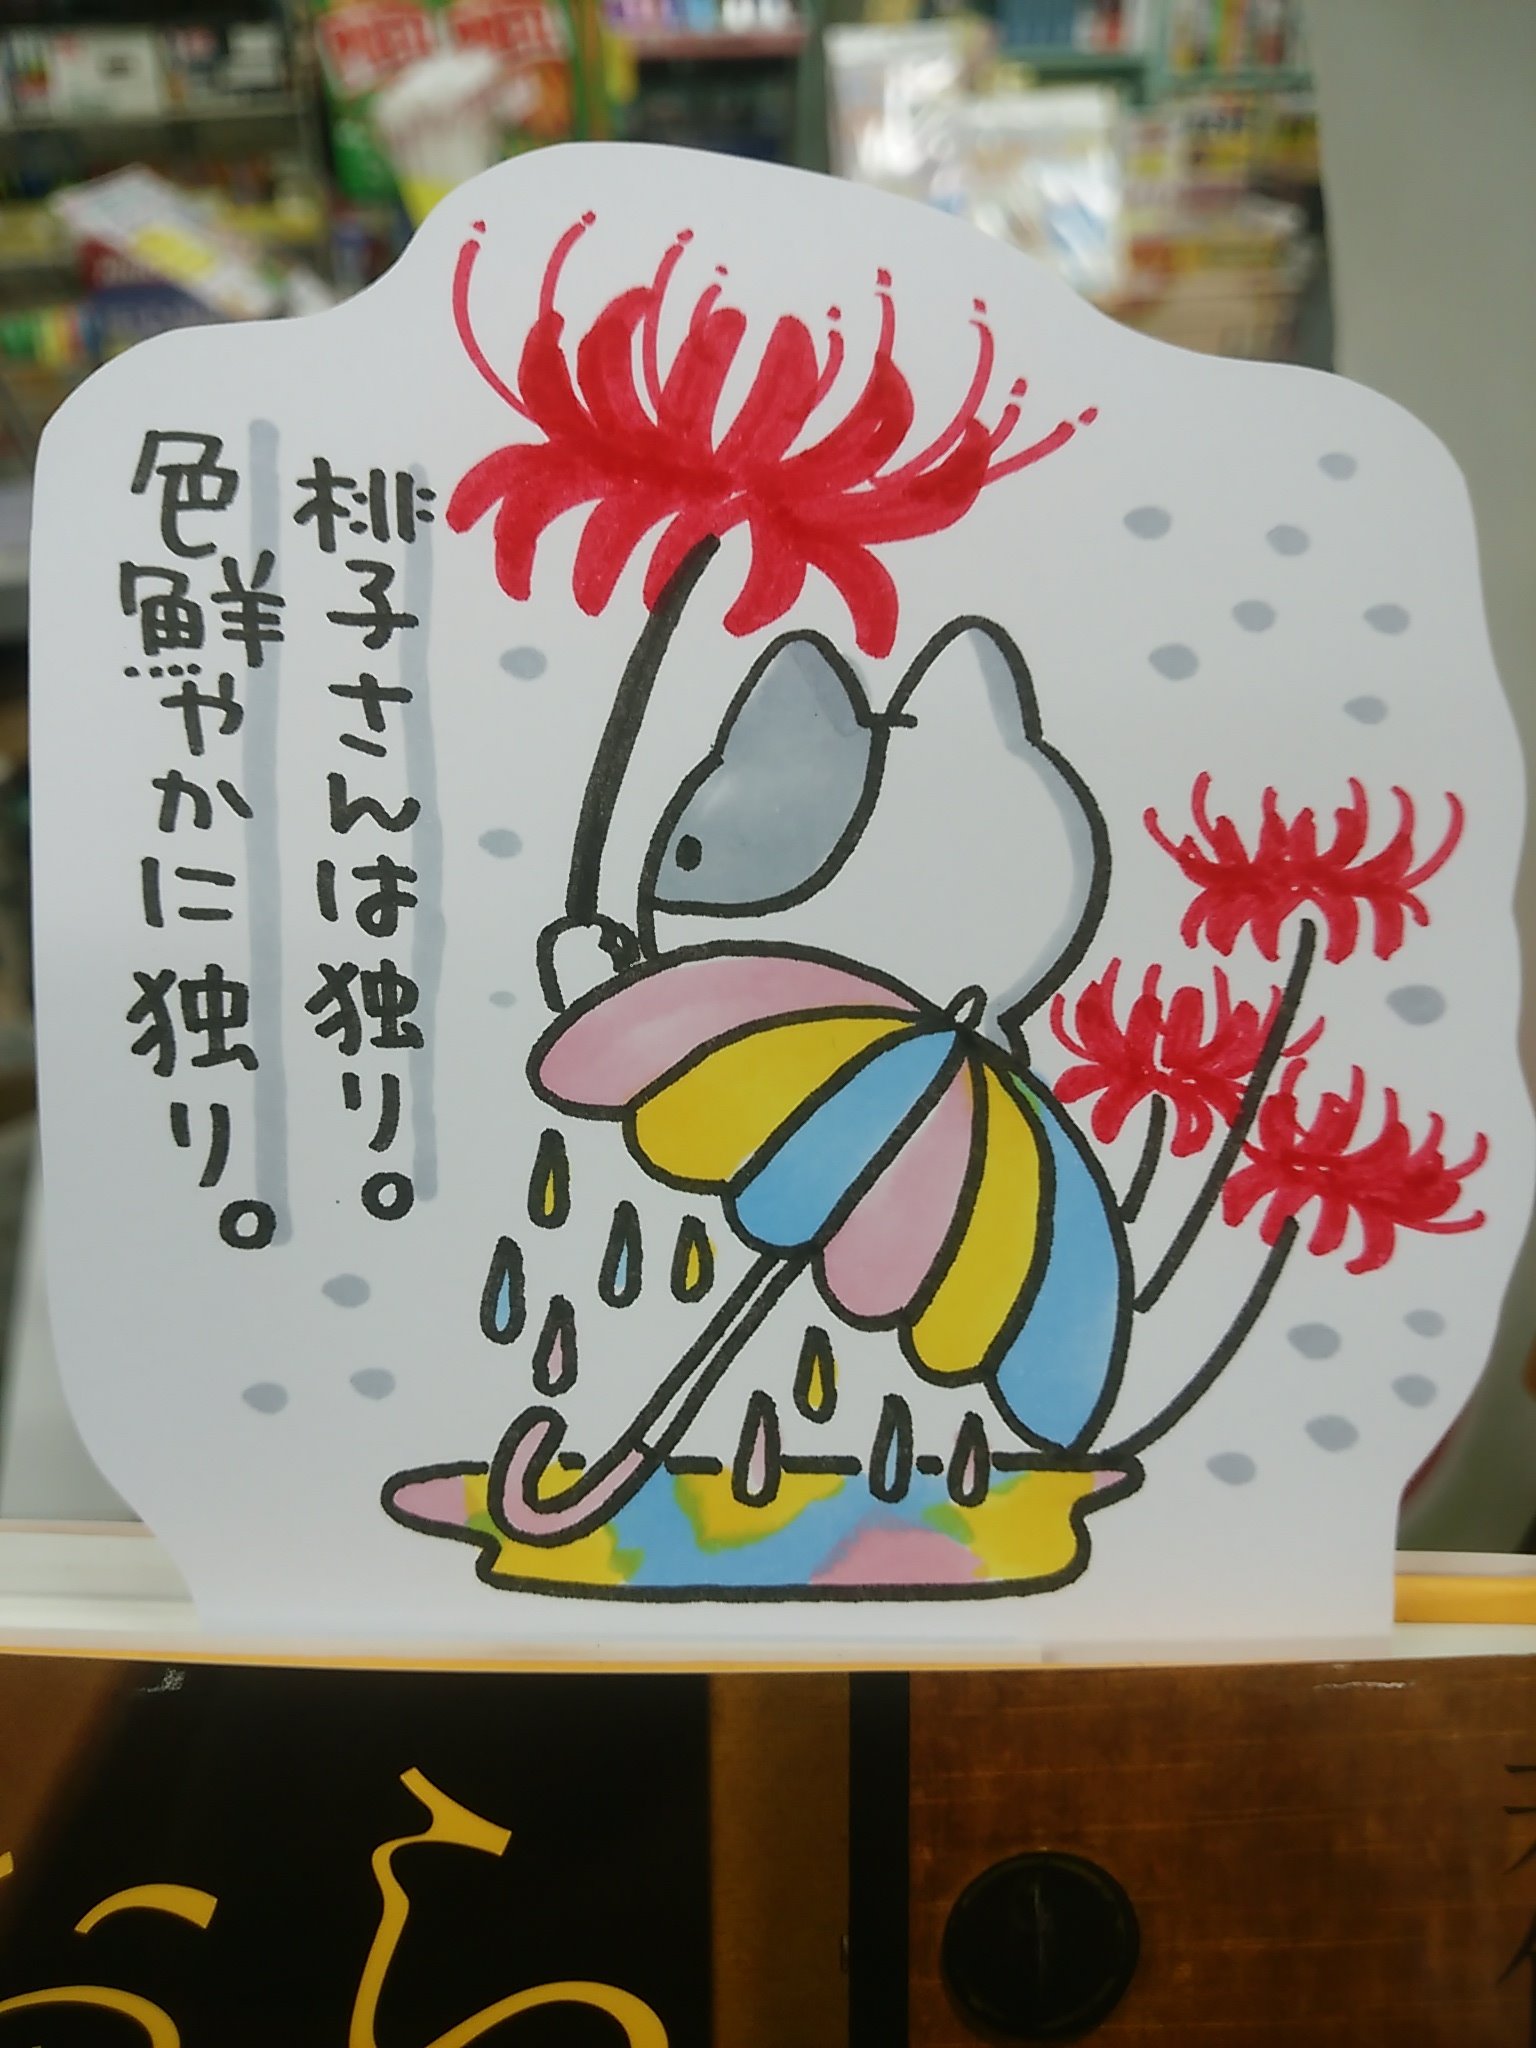 桃子さんは独り。
色鮮やかに独り。